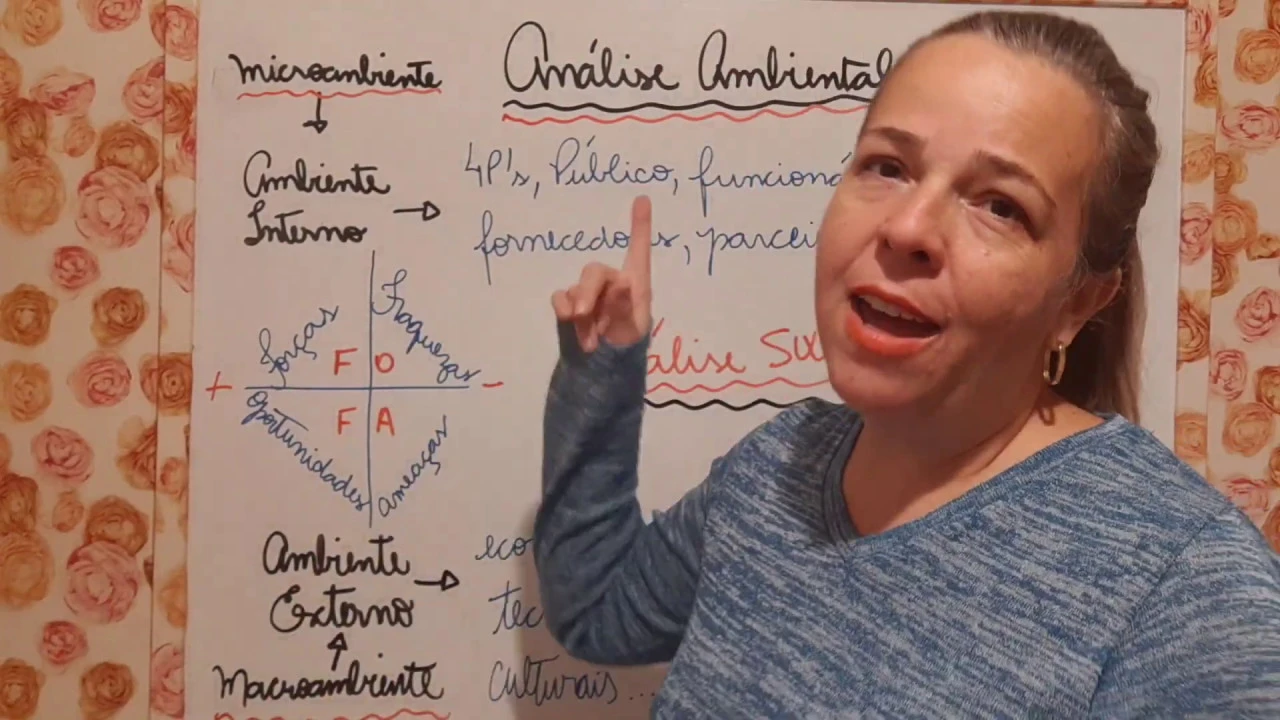 Análise Ambiental
microambiente
Ambiente
Interno
4P's, Público, funcioná
fornecedo s, parcei
Forças
Fraquezas
F O
+ -
F A
Oportunidades
Ameaças
álise SW
Ambiente
Externo
Macroambiente
eco
tec
culturais...